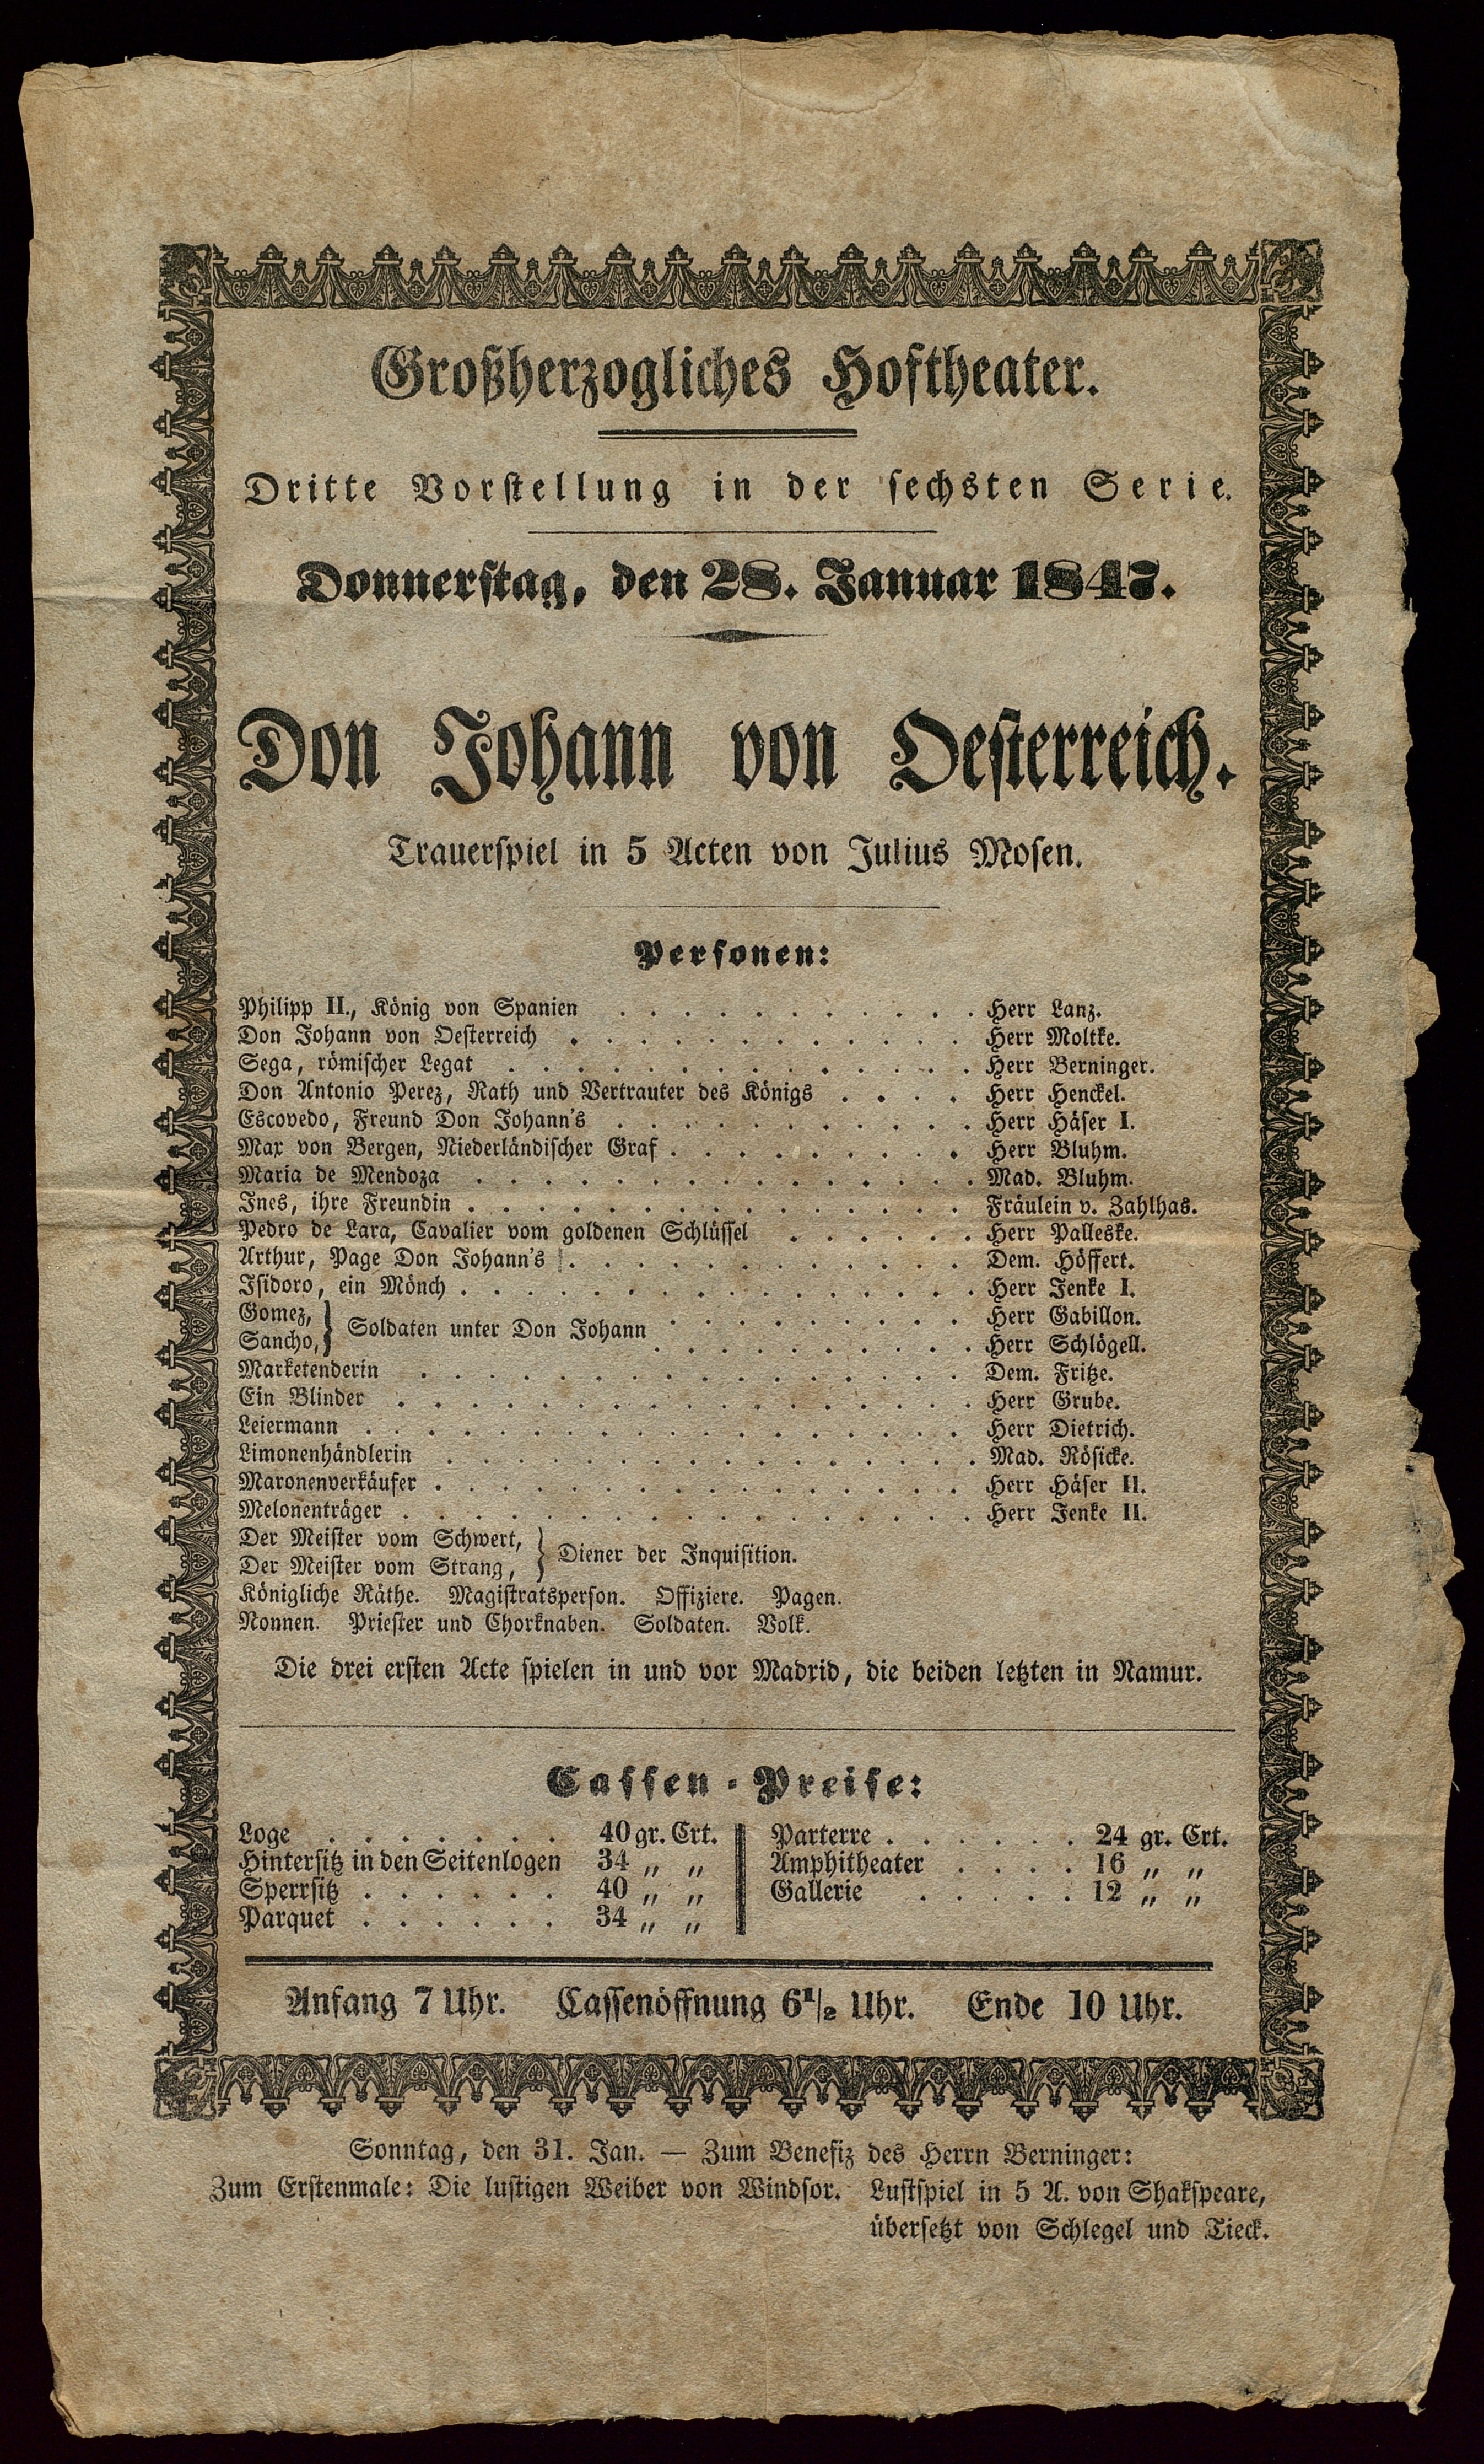 Großherzogliches Hoftheater.
Dritte Vorstellung in der sechsten Serie.
Donnerstag, den 28. Januar 1847.
Don Johann von Oesterreich.
Trauerspiel in 5 Acten von Julius Mosen.
Personen:
Philipp II., König von Spanien . . . . . . . . . . . Herr Lanz.
Don Johann von Oesterreich . . . . . . . . . . . . Herr Moltke.
Sega, römischer Legat . . . . . . . . . . . . . Herr Berninger.
Don Antonio Perez, Rath und Vertrauter des Königs . . . . Herr Henckel.
Escovedo, Freund Don Johann's . . . . . . . . . . . Herr Häser I.
Max von Bergen, Niederländischer Graf . . . . . . . . . Herr Bluhm.
Maria de Mendoza . . . . . . . . . . . . . . . Mad. Bluhm.
Ines, ihre Freundin . . . . . . . . . . . . . . . Fräulein v. Zahlhas.
Pedro de Lara, Cavalier vom goldenen Schlüssel . . . . . . Herr Palleske.
Arthur, Page Don Johann's . . . . . . . . . . . . Dem. Höffert.
Isidoro, ein Mönch . . . . . . . . . . . . . . . Herr Jenke I.
Gomez, } Soldaten unter Don Johann . . . . . . . . . Herr Gabillon.
Sancho, } . . . . . . . . . . Herr Schlögell.
Marketenderin . . . . . . . . . . . . . . . . Dem. Fritze.
Ein Blinder . . . . . . . . . . . . . . . . . Herr Grube.
Leiermann . . . . . . . . . . . . . . . . . . Herr Dietrich.
Limonenhändlerin . . . . . . . . . . . . . . . Mad. Rösicke.
Maronenverkäufer . . . . . . . . . . . . . . . . Herr Häser II.
Melonenträger . . . . . . . . . . . . . . . . . Herr Jenke II.
Der Meister vom Schwert, } Diener der Inquisition.
Der Meister vom Strang, }
Königliche Räthe. Magistratsperson. Offiziere. Pagen.
Nonnen. Priester und Chorknaben. Soldaten. Volk.
Die drei ersten Acte spielen in und vor Madrid, die beiden letzten in Namur.
Cassen-Preise:
Loge . . . . . . . 40 gr. Crt.
Hintersitz in den Seitenlogen 34 „ „
Sperrsitz . . . . . . 40 „ „
Parquet . . . . . . 34 „ „
Parterre . . . . . . 24 gr. Crt.
Amphitheater . . . . 16 „ „
Gallerie . . . . . 12 „ „
Anfang 7 Uhr. Cassenöffnung 6 1/2 Uhr. Ende 10 Uhr.
Sonntag, den 31. Jan. — Zum Benefiz des Herrn Berninger:
Zum Erstenmale: Die lustigen Weiber von Windsor. Lustspiel in 5 A. von Shakspeare,
übersetzt von Schlegel und Tieck.